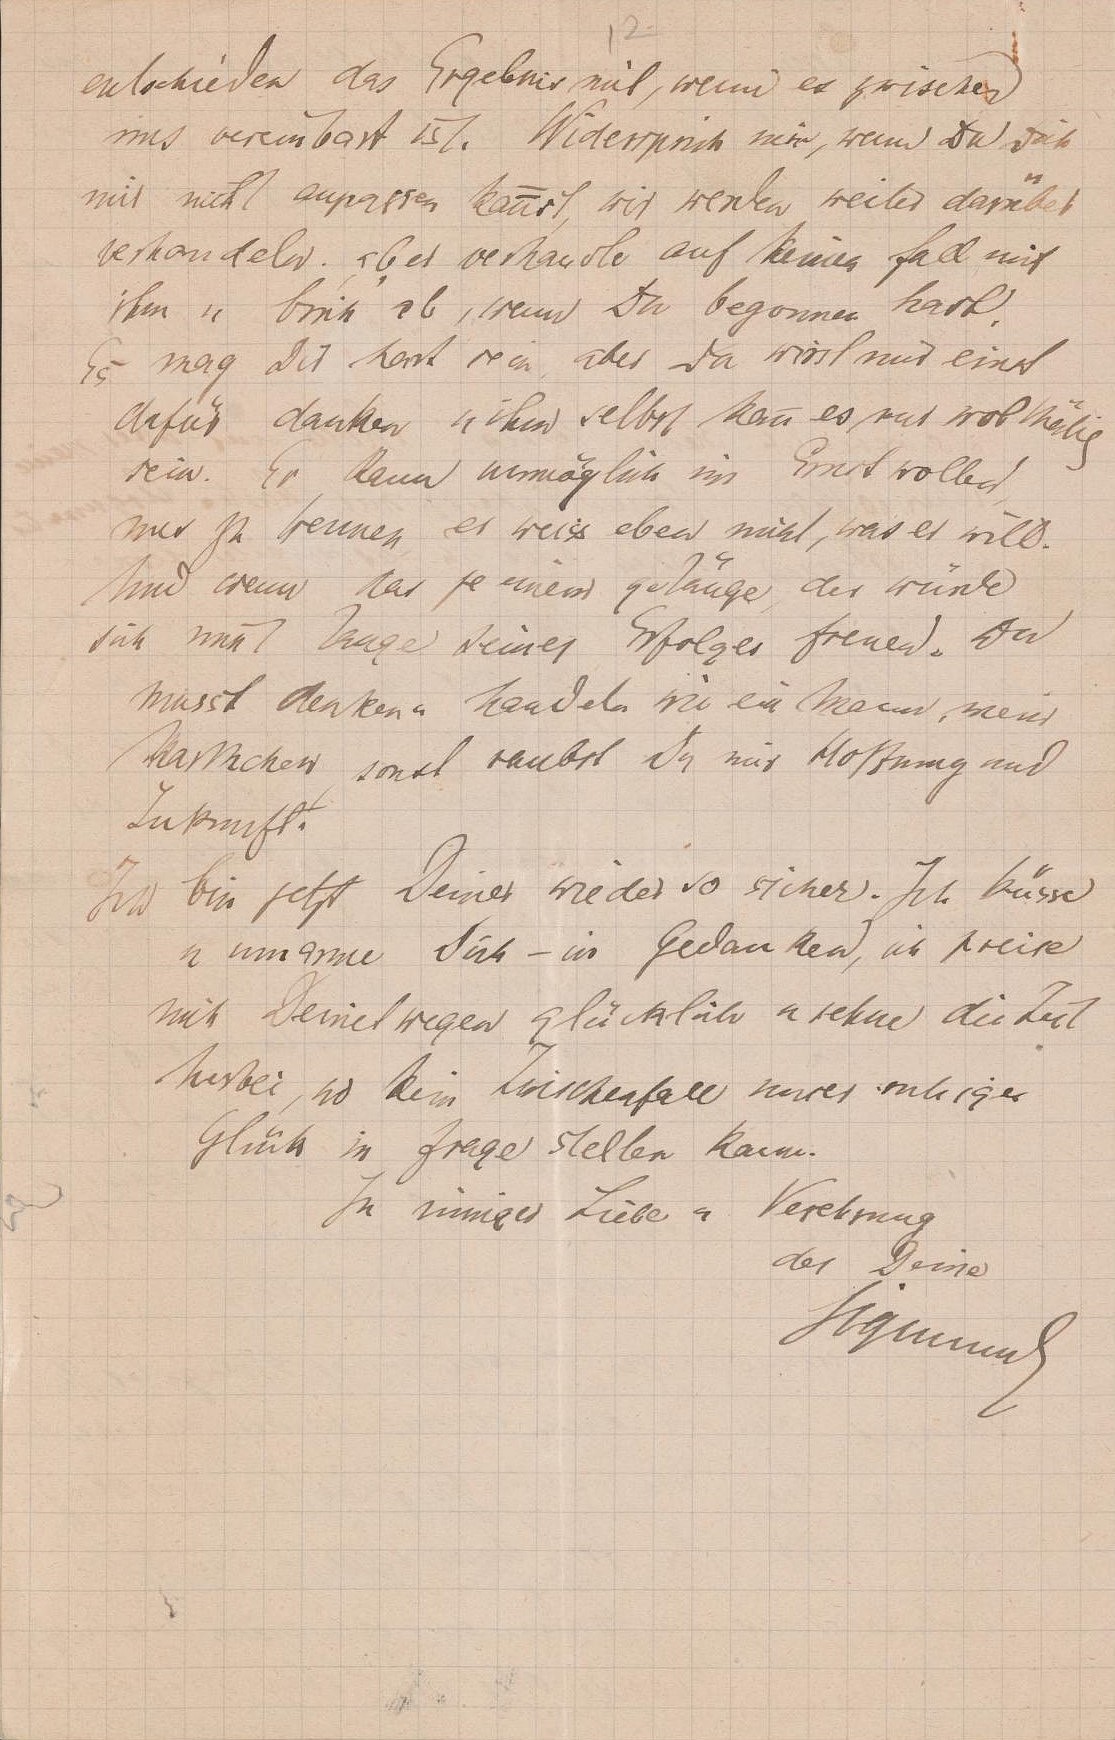 12
entschieden das Ergebnis mit, wenn es zwischen
uns vereinbart ist. Widersprich mir, wenn Du Dich
mir nicht anpassen kan̄st, wir werden weiter darüber
verhandeln. aber verhandle auf keinen Fall mit
ihm u brich ab, wenn Du begonnen hast.
Es mag Dir hart sein, aber Du wirst mir einst
dafür danken u ihm selbst kan̄ es nur wolthätig
sein. Er kann unmöglich im Ernst wollen,
uns zu trennen, er weiß eben nicht, was er will.
Und wenn das je einem gelänge, der würde
sich nicht lange seines Erfolges freuen. Du
musst denken u handeln wie ein Mann, mein
Marthchen, sonst raubst Du mir Hoffnung und
Zukunft.
Ich bin jetzt Deiner wieder so sicher. Ich küsse
u umarme Dich – in Gedanken, ich preise
mich Deinetwegen glücklich u sehne die Zeit
herbei, wo kein Zwischenfall unser ruhiges
Glück in Frage stellen kann.
In inniger Liebe u Verehrung
der Deine
Sigmund